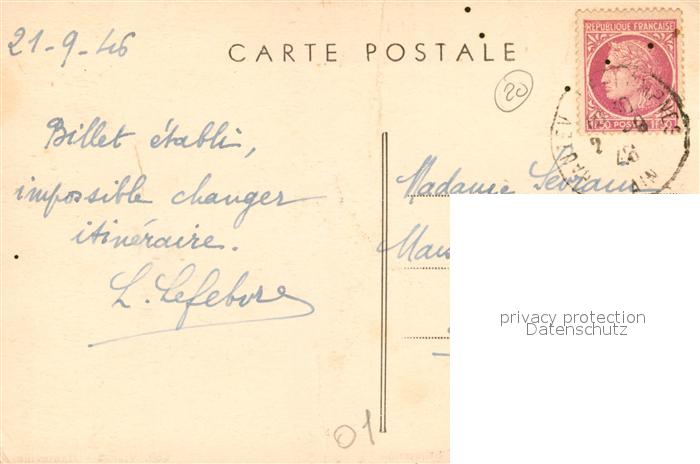 21-9-46
CARTE POSTALE
REPUBLIQUE FRANÇAISE
20
Billet établi,
impossible changer
itinéraire.
L. Lefebvre
Madame
privacy protection
Datenschutz
01